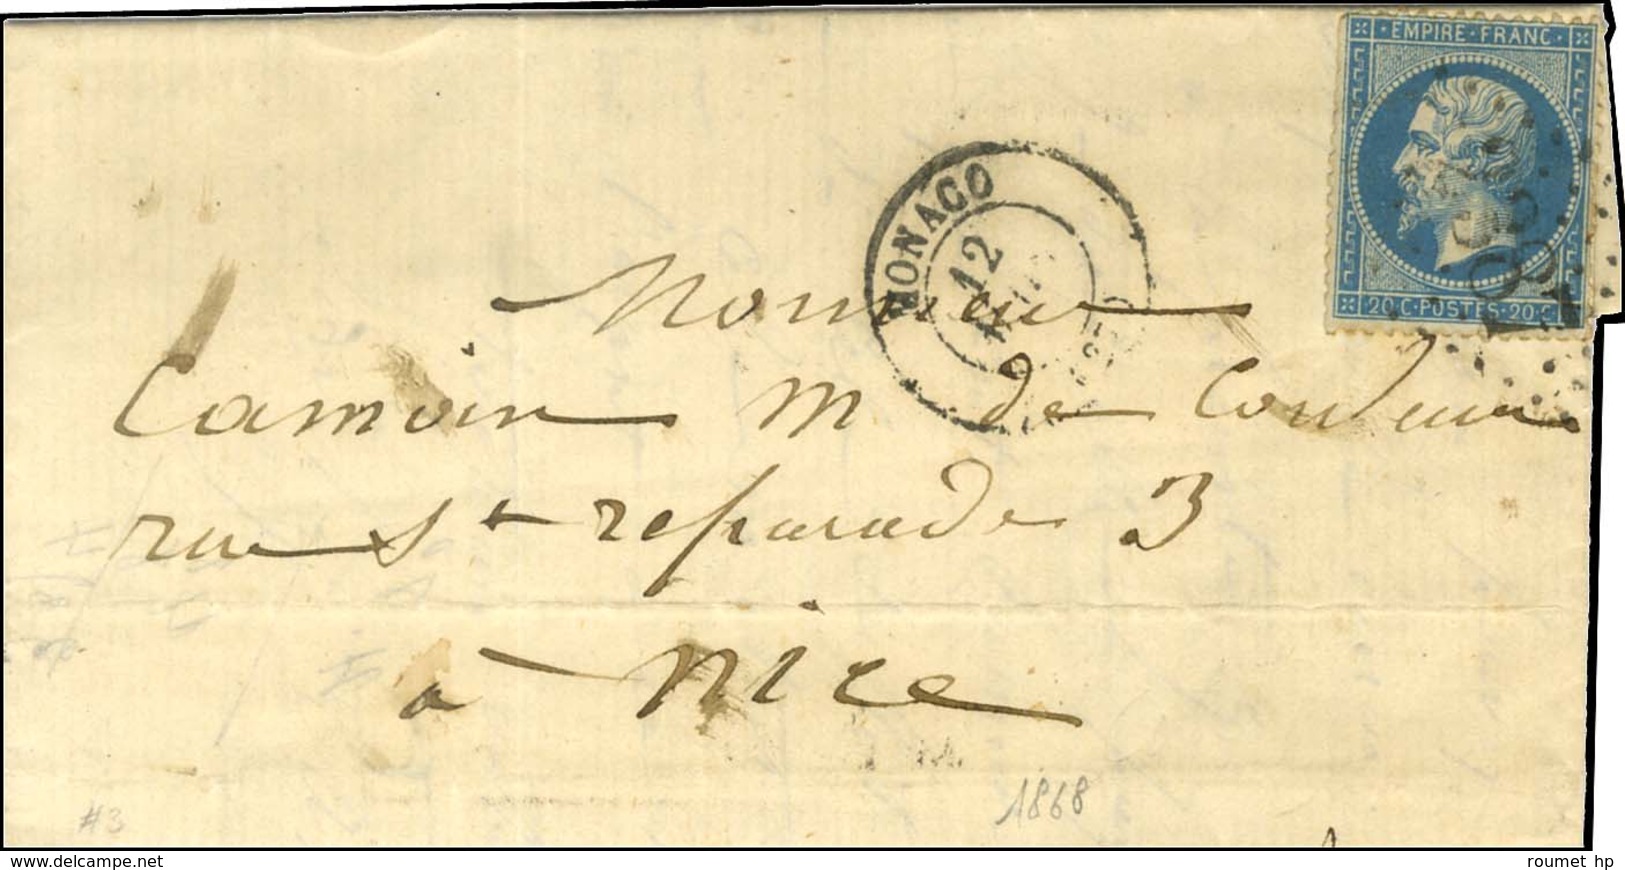 EMPIRE · FRANC ·
20·C·POSTES·20·C
MONACO
12
Monsieur
Camoin m de Couleur
rue Ste reparade 3
a Nice
1868
#3
www.delcampe.net
roumet hp